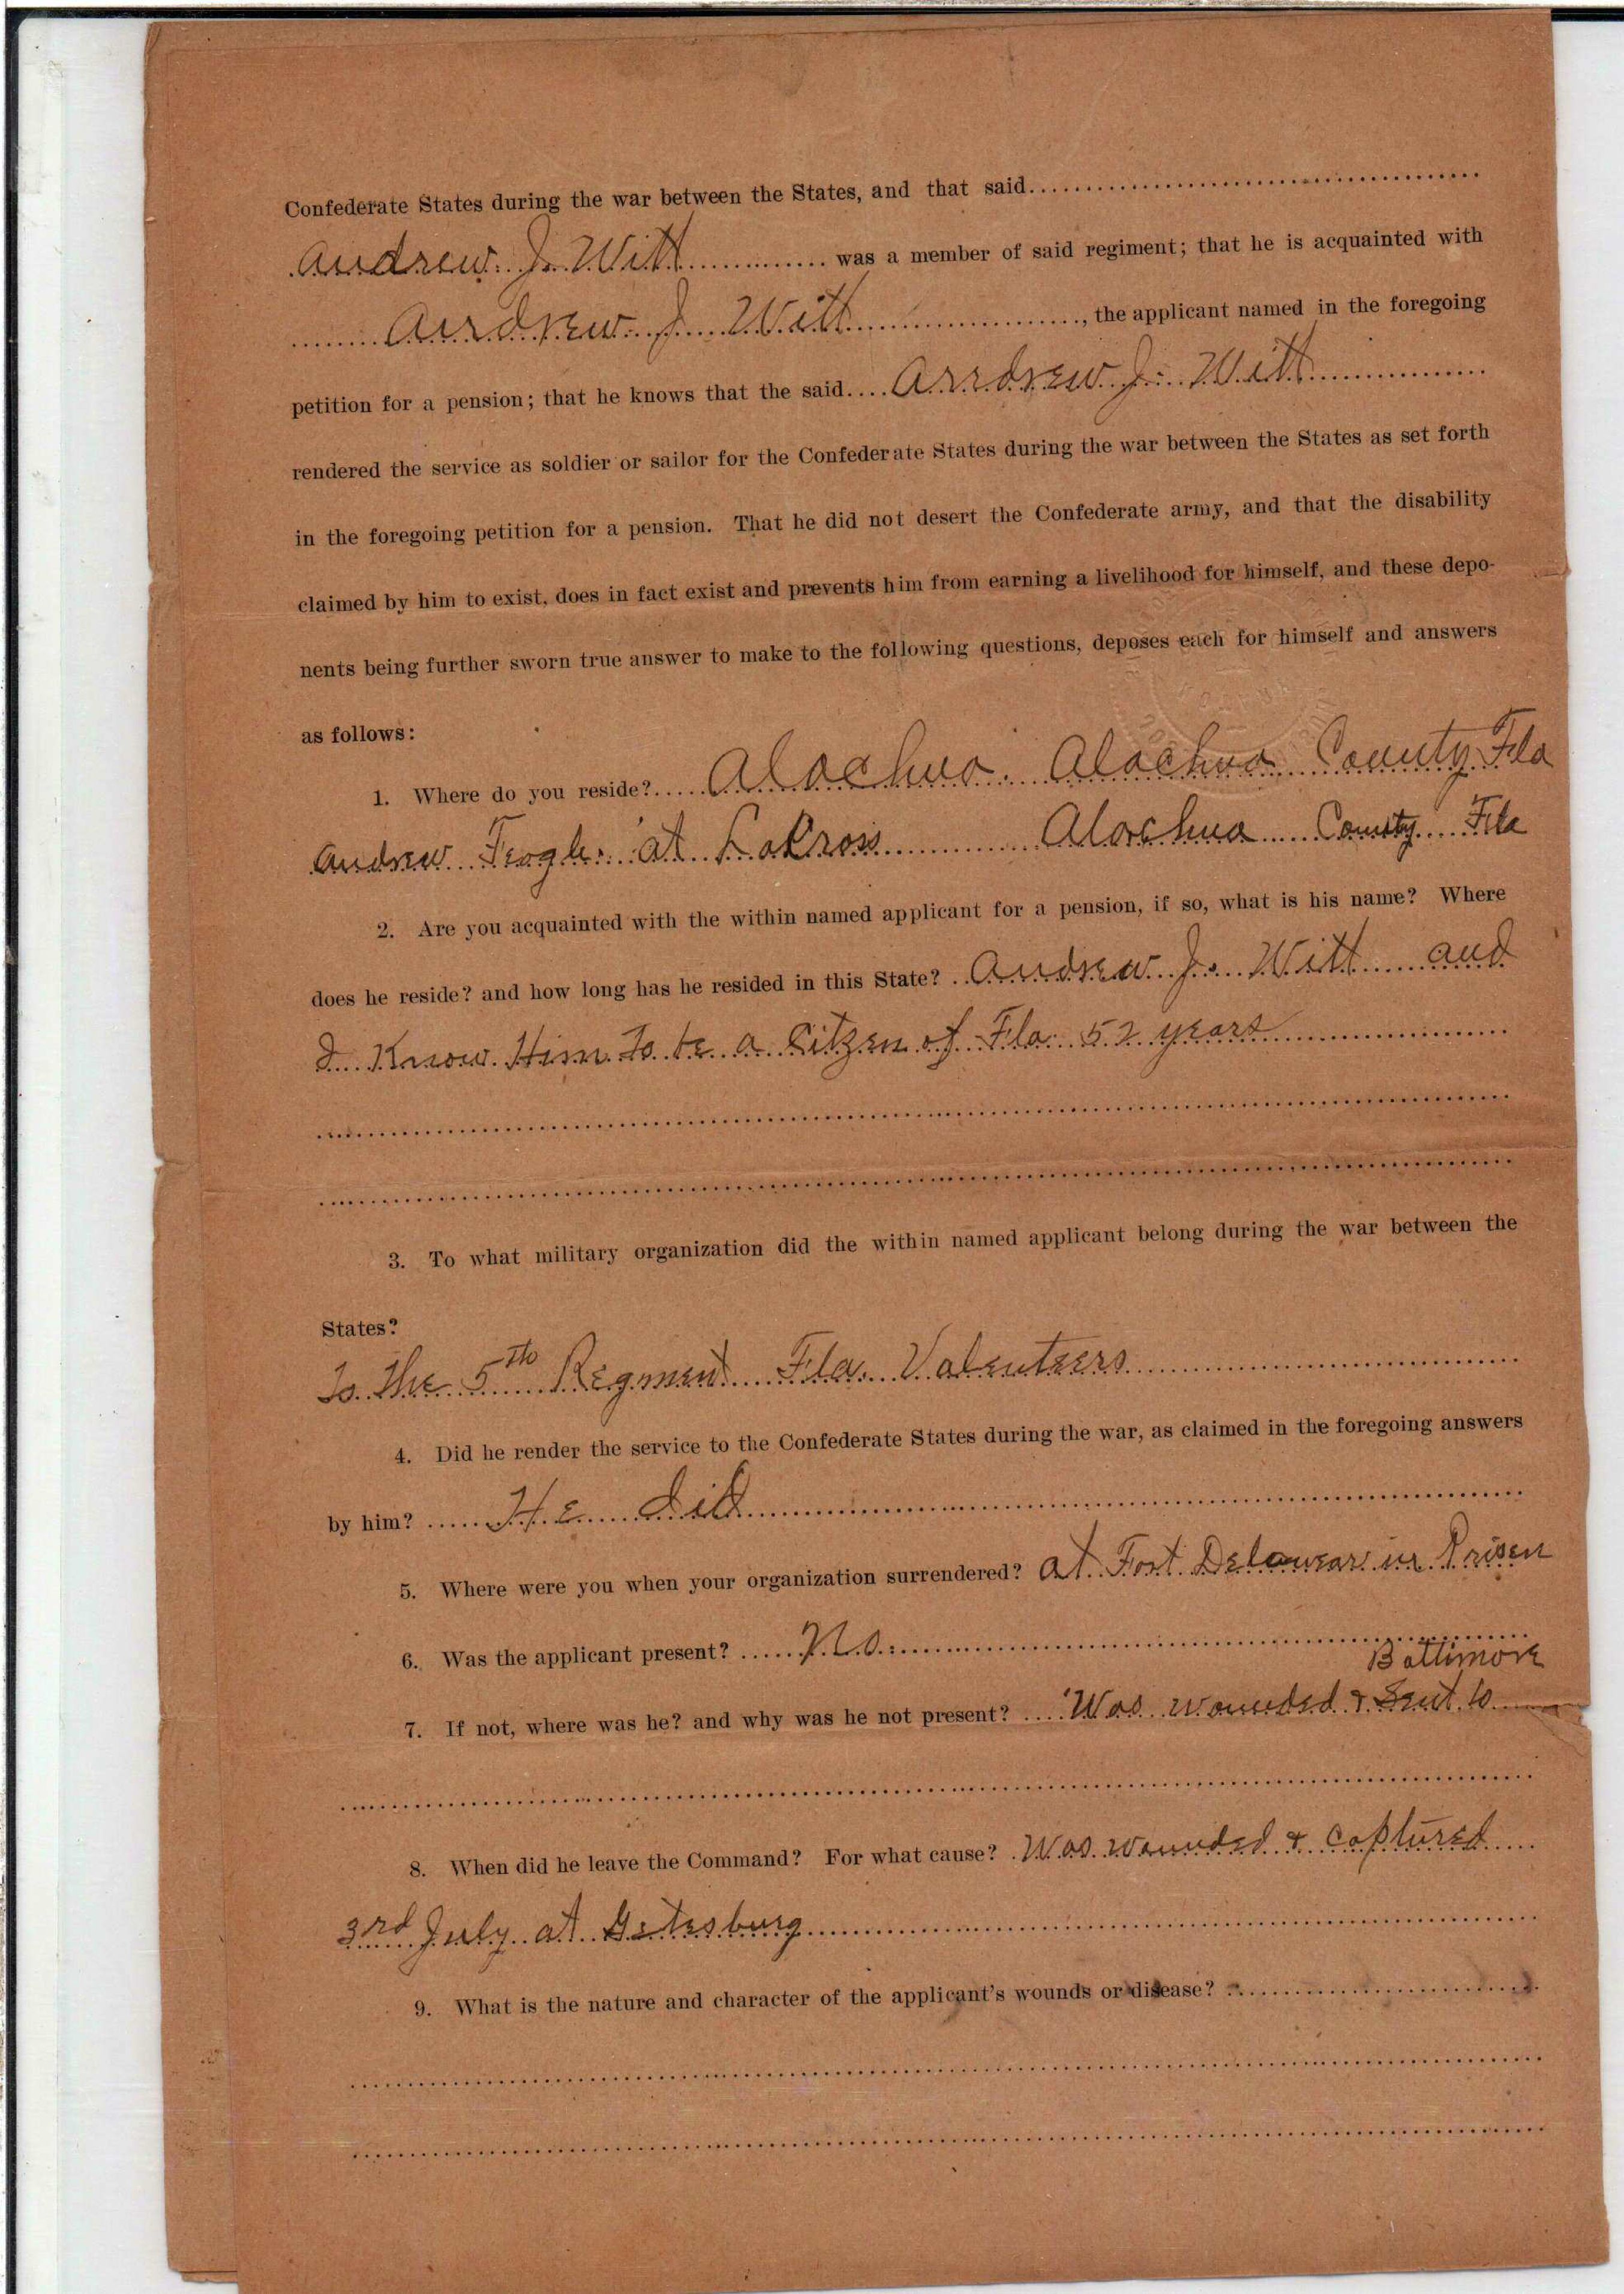 Confederate States during the war between the States, and that said
Andrew J. Witt was a member of said regiment; that he is acquainted with
Andrew J Witt, the applicant named in the foregoing
petition for a pension; that he knows that the said Andrew J. Witt
rendered the service as soldier or sailor for the Confederate States during the war between the States as set forth
in the foregoing petition for a pension. That he did not desert the Confederate army, and that the disability
claimed by him to exist, does in fact exist and prevents him from earning a livelihood for himself, and these depo-
nents being further sworn true answer to make to the following questions, deposes each for himself and answers
as follows:
1. Where do you reside? Alachua. Alachua County Fla
Andrew at LaCross Alachua County Fla
2. Are you acquainted with the within named applicant for a pension, if so, what is his name? Where
does he reside? and how long has he resided in this State? Andrew J. Witt and
I Know Him to be a Citzen of Fla 52 years
3. To what military organization did the within named applicant belong during the war between the
States?
To the 5th Regment Fla. Valenteers
4. Did he render the service to the Confederate States during the war, as claimed in the foregoing answers
by him? He did
5. Where were you when your organization surrendered? at Fort Delawear in Prisen
6. Was the applicant present? No.
Baltimore
7. If not, where was he? and why was he not present? Was wounded & Sent to
8. When did he leave the Command? For what cause? Was wounded & captured
3rd July at Getesburg
9. What is the nature and character of the applicant's wounds or disease?